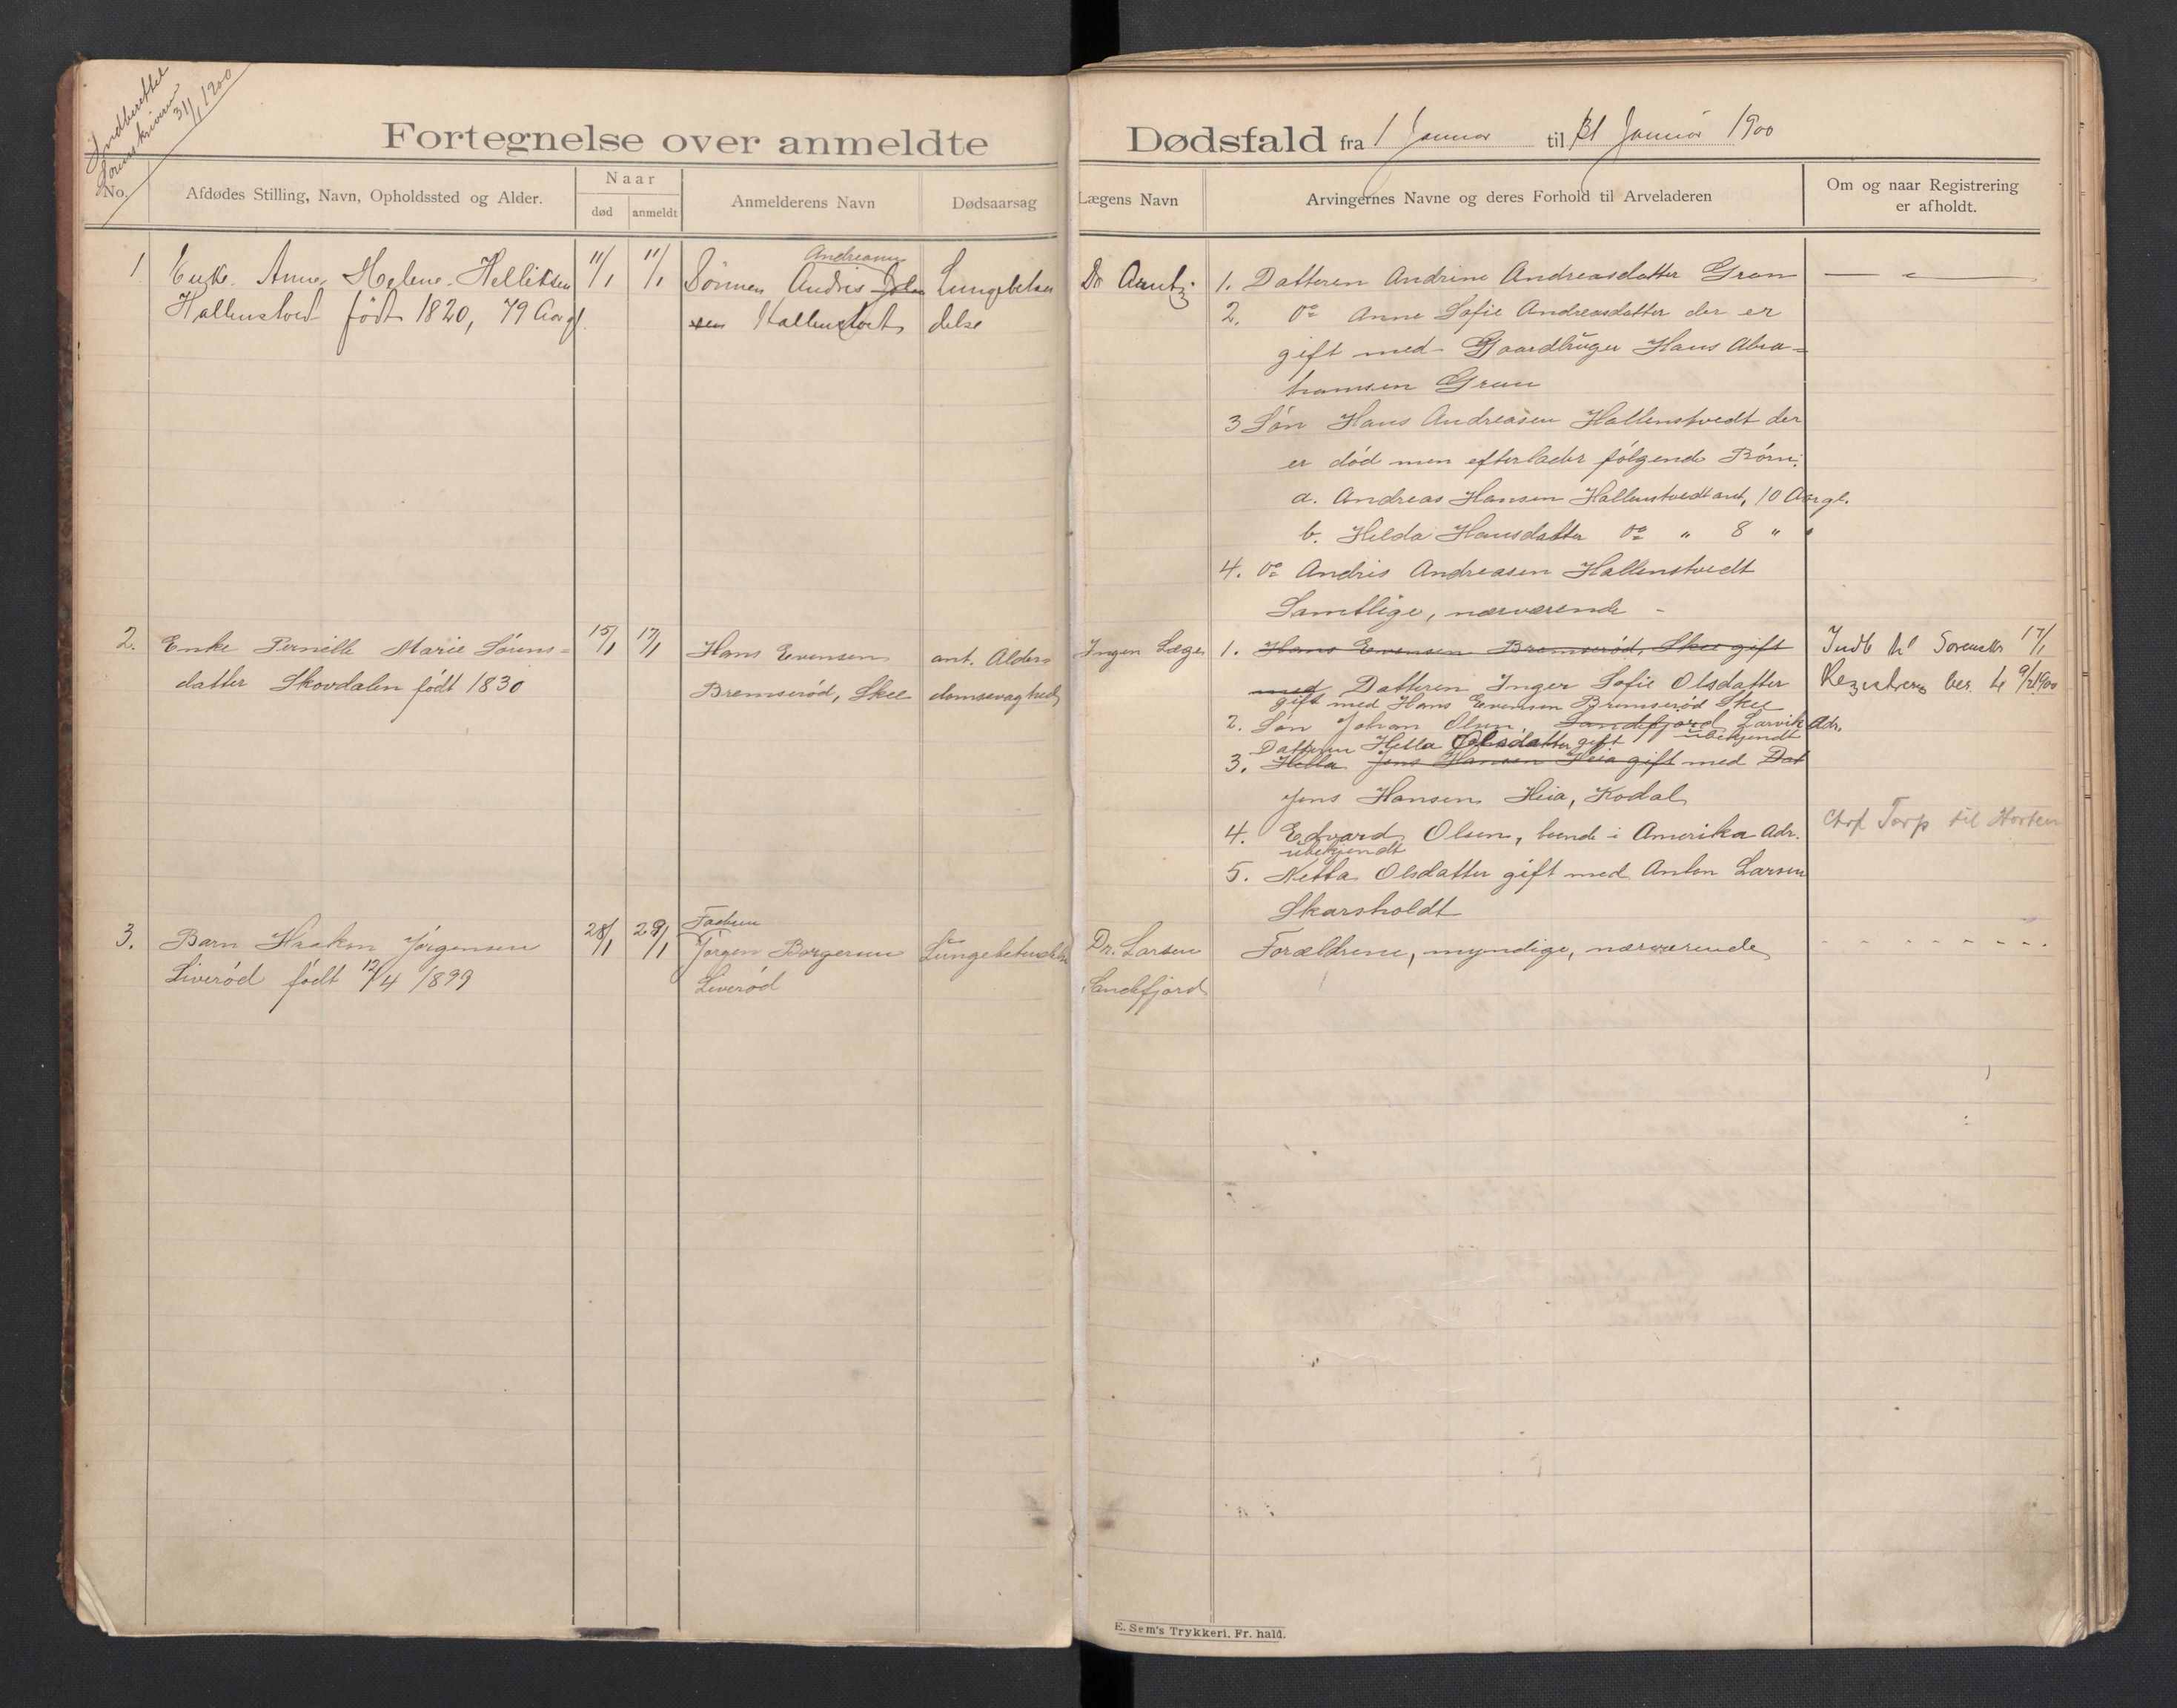 Indberettet
Sorenskriveren
31/1 1900
Fortegnelse over anmeldte
Dødsfald fra 1 Januar til 31 Januar 1900
No.
Afdødes Stilling, Navn, Opholdssted og Alder.
Naar
død
anmeldt
Anmelderens Navn
Dødsaarsag
Lægens Navn
Arvingernes Navne og deres Forhold til Arveladeren
Om og naar Registrering
er afholdt.
1
Enke Anne HeleneIelliksen
Hallenstvedt født 1820, 79 Aar gl.
11/1
11/1
Andreasen
Sønnen Andris
sen Hallenstvet
Lungebetæn
delse
Dr Arentz
1. Datteren Andrine Andreasdatter Gran
2. do Anne Sofie Andreasdatter der er
gift med Gaardbruger Hans Abra-
hamsen Gran
3 Søn Hans Andreasen Hallenstvedt der
er død men efterlader følgende Børn:
a. Andreas Hansen Hallenstvedt ant. 10 Aar gl.
b. Helda Hansdatter do " 8 " "
4. do Andris Andreasen Hallenstvedt
Samtlige, nærværende -
2.
Enke Pernille Marie Sørens-
datter Skovdalen født 1830
15/1
17/1
Hans Evensen
Bremserød, Skee
ant. Alder-
domssvaghed
Ingen Læge
1. Hans Evensen Bremserød, Skee gift
med Datteren Inger Sofie Olsdatter
gift med Hans Evensen Bremserød Skee
2. Søn Johan Olsen, Sandefjord Larvik Adr.
ubekjendt
Datteren Hella Olsdatter gift
3. Hella Jens Hansen Heia gift med Dat
Jens Hansen Heia, Kodal
4. Edvard Olsen, boende i Amerika Adr.
ubekjendt
5. Netta Olsdatter gift med Anton Larsen
Skarsholdt
Indb til Sorenskr 17/1
Registrering ber. 9/2 1900
Torp til Horten
3.
Barn Haakon Jørgensen
Liverød født 12/4 1899
28/1
29/1
Faderen
Jørgen Borgersen
Liverød
Lungebetændelse
Dr. Larsen
Sandefjord
Forældrene, myndige, nærværende
E. Sem's Trykkeri, Fr. hald.